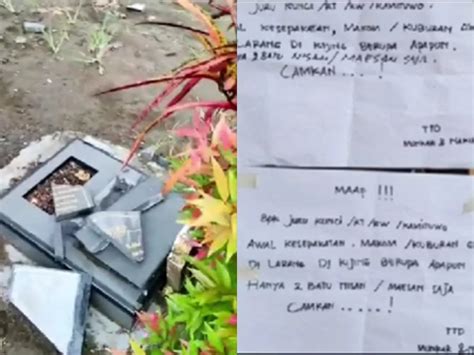 JURU KUNCI /RT /RW /KAMITUWO
AL KESEPAKATAN, MAKOM /KUBURAN
LARANG DI KIJING BERUPA APAPUN.
2 BATU NISAN / MAESAN SAJA
CAMKAN . . . . !
TTD
MAAF !!!
BPK JURU KUNCI /RT /RW /KAMITUWO
AWAL KESEPAKATAN, MAKOM /KUBURAN
DI LARANG DI KIJING BERUPA APAPUN
HANYA 2 BATU NISAN / MAESAN SAJA
CAMKAN . . . . !
TTD